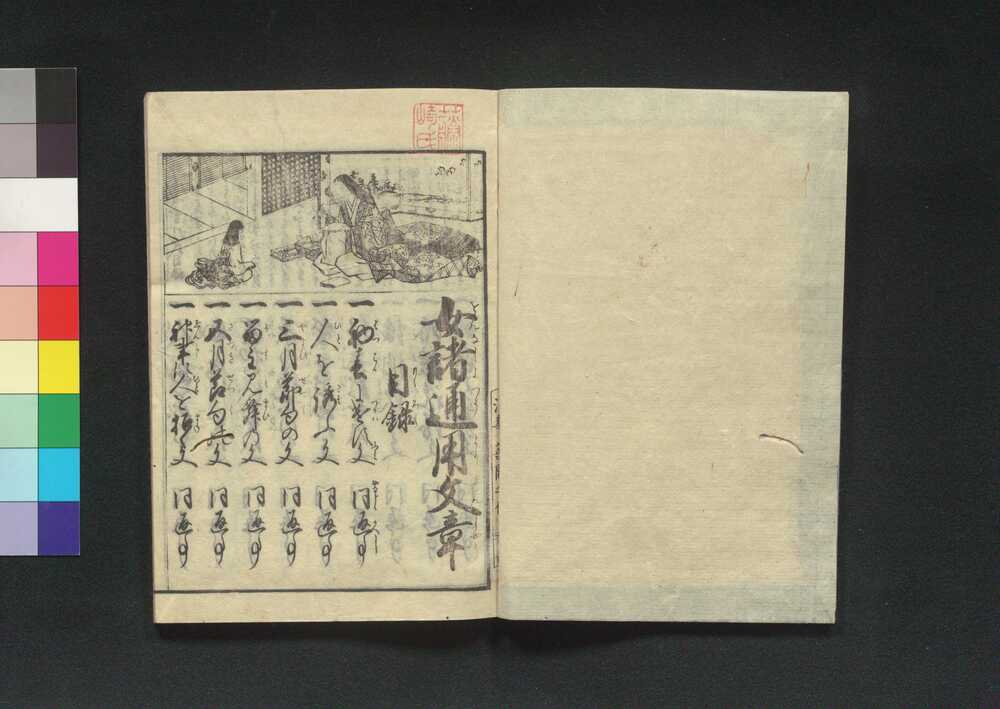 女諸通用文章
目録
一 初春に遣す文 同返事
一 人を誘ふ文 同返事
一 三月節句の文 同返事
一 留主見舞の文 同返事
一 五月節句の文 同返事
一 神事に人を招文 同返事